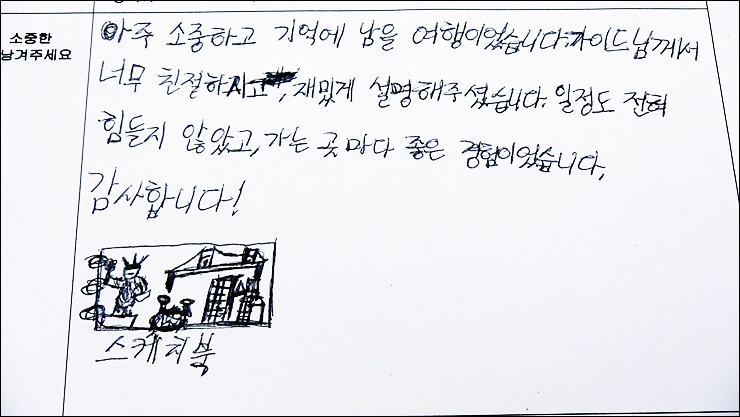 소중한
남겨주세요
아주 소중하고 기억에 남을 여행이었습니다. 가이드님께서
너무 친절하시고, 재밌게 설명해주셨습니다. 일정도 전혀
힘들지 않았고, 가는 곳마다 좋은 경험이었습니다,
감사합니다!
스케치북